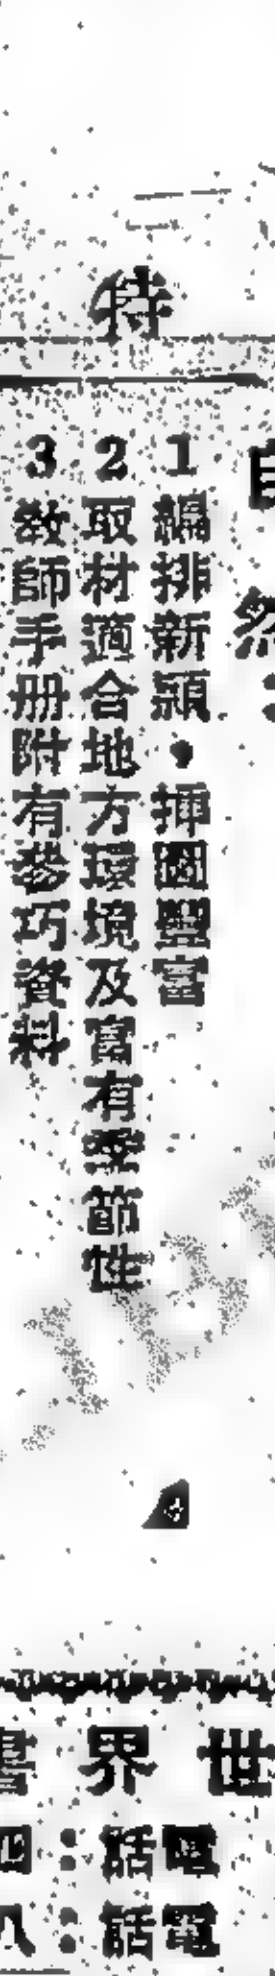 特
自然:
1編排新頴,挿圖豐富
2取材適合地方環境及富有季節性
3敎師手册附有參巧資料
世界書
電話:四
電話:八